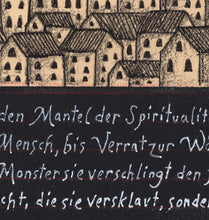 den Mantel der Spiritualit
Mensch, bis Verrat zur Wa
Monster sie verschlingt den
cht, die sie versklavt, sonder